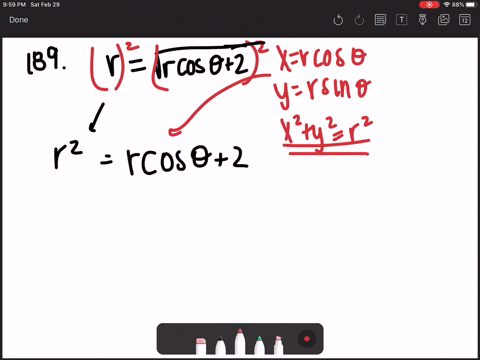 9:59 PM Sat Feb 29
Done
T
12
189. (r)² = (√rcosθ+2)² x=rcosθ
y=rsinθ
x²+y²=r²
r² = rcosθ+2